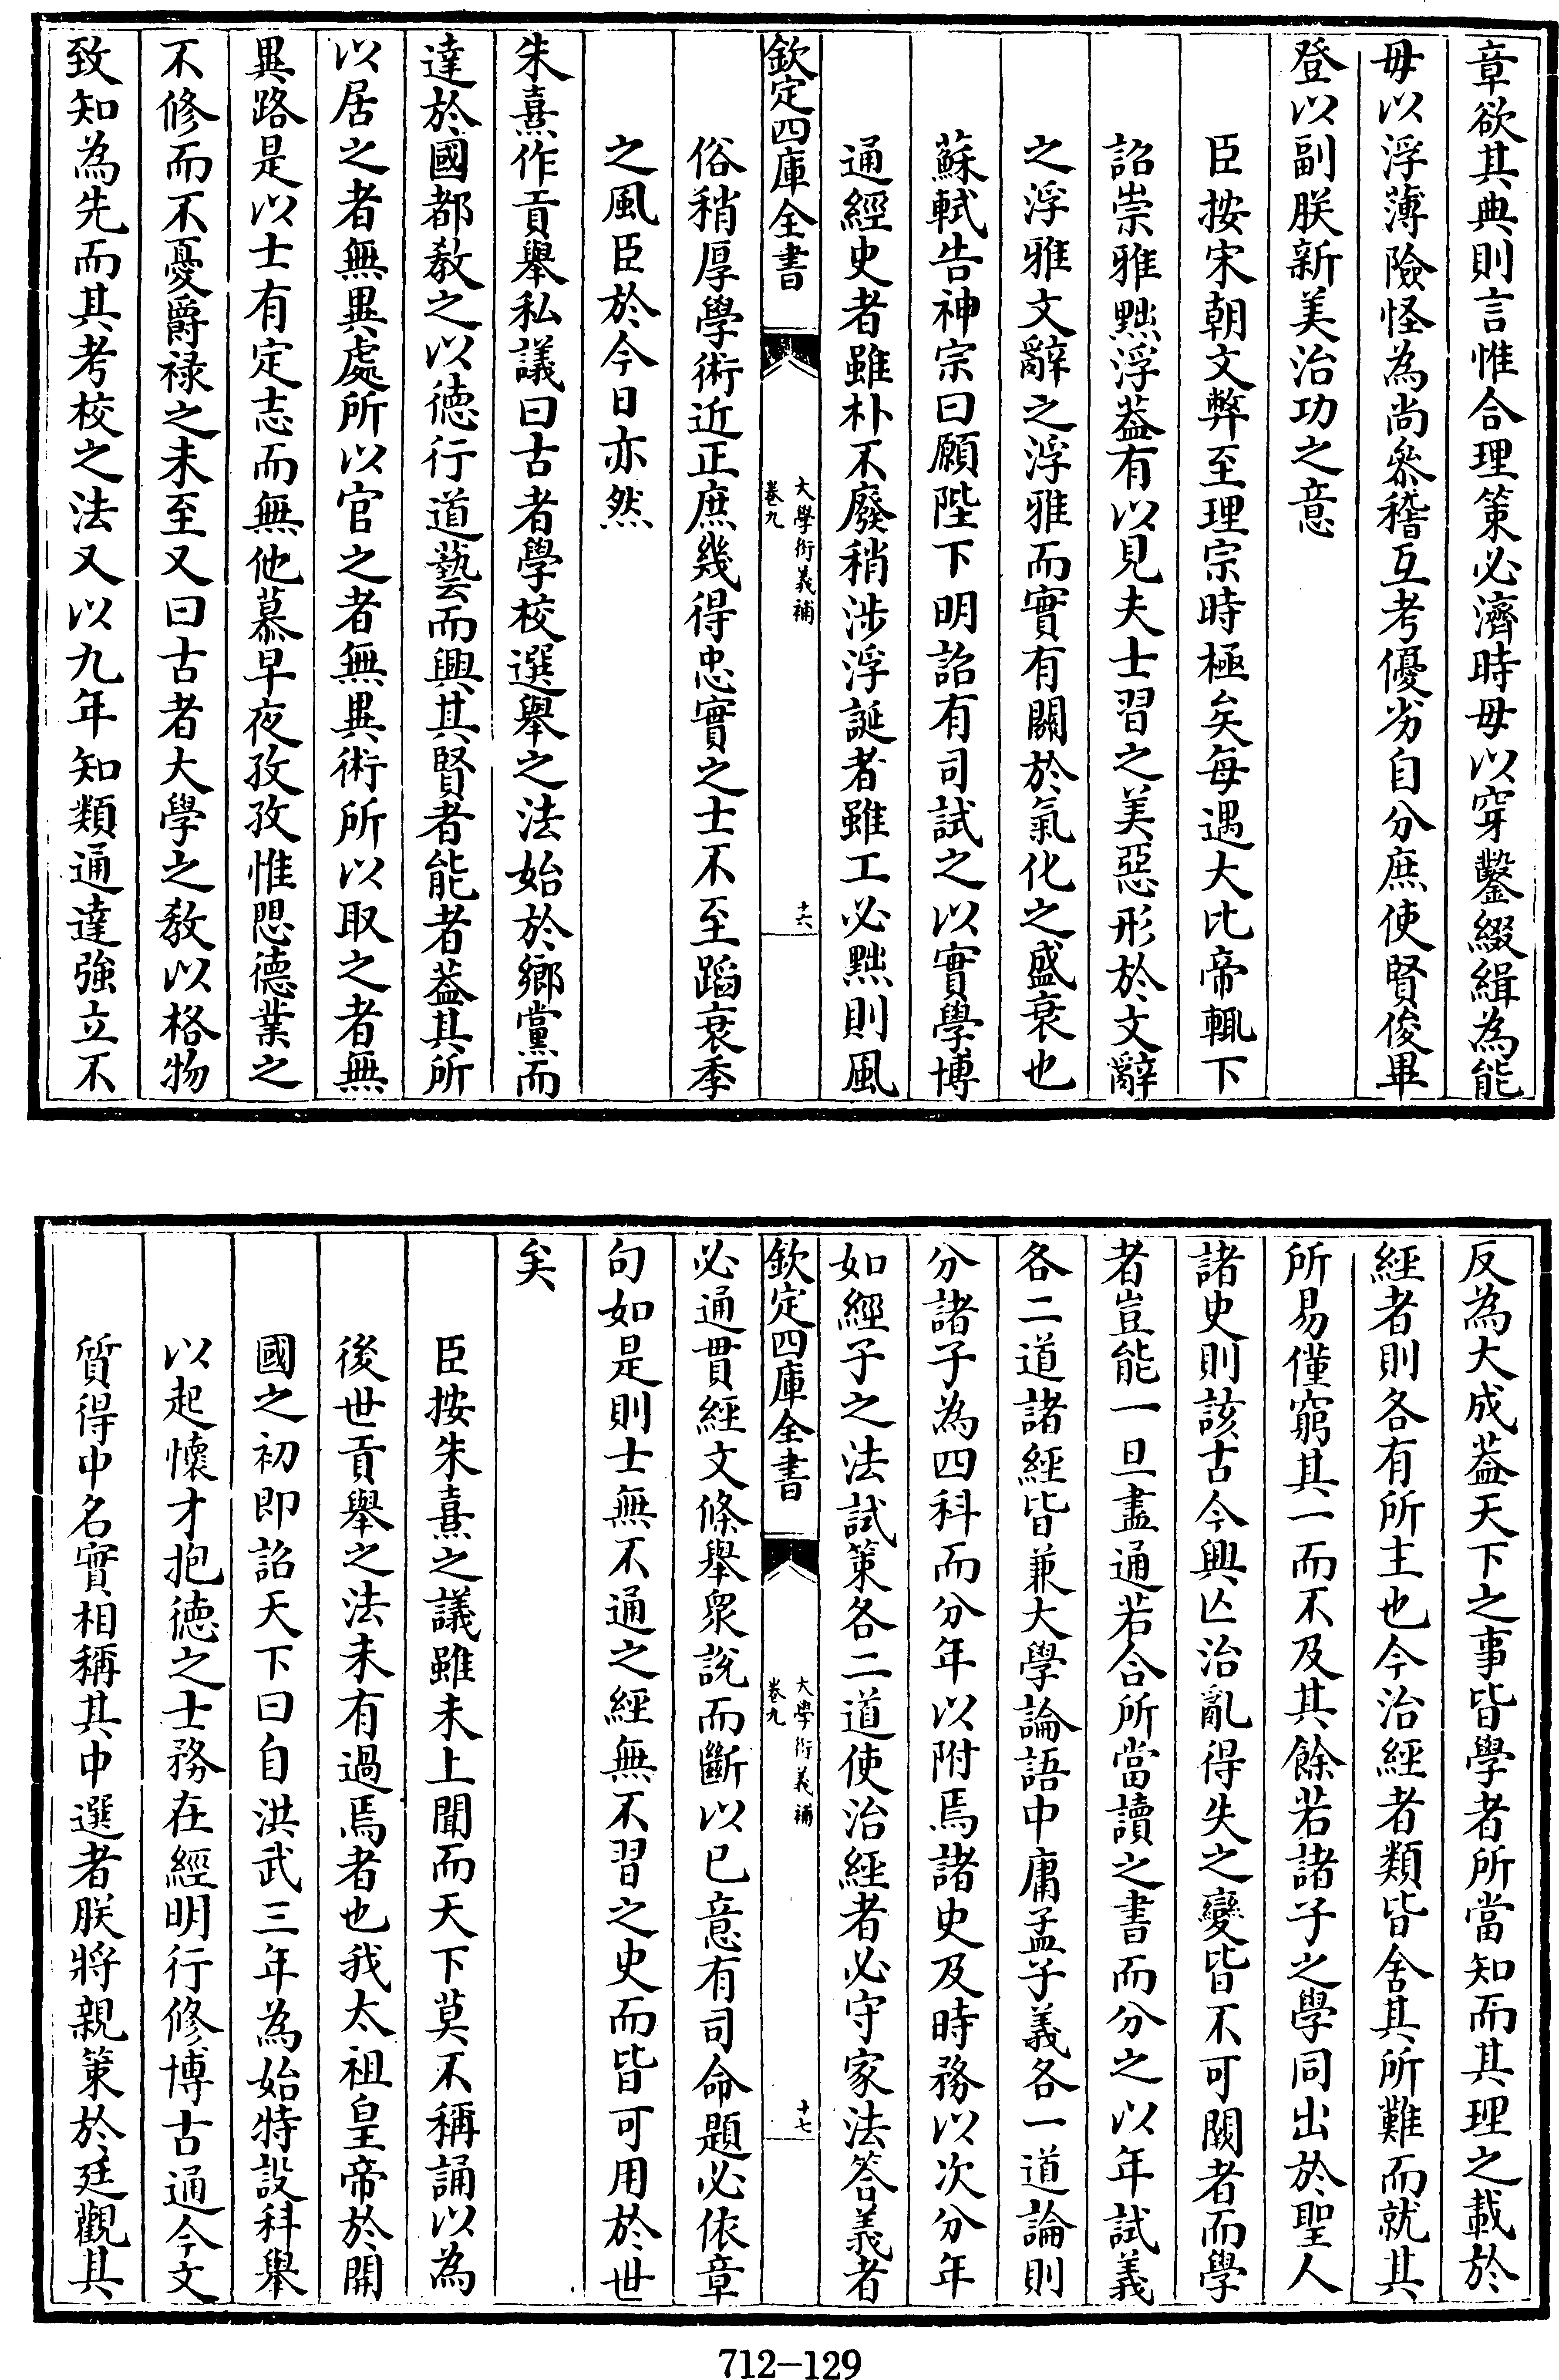 章欲其典則言惟合理策必濟時毋以穿鑿綴緝為能
毋以浮薄險怪為尚叅稽互考優劣自分庶使賢俊畢
登以副朕新美治功之意
臣按宋朝文弊至理宗時極矣每遇大比帝輒下
詔崇雅黜浮葢有以見夫士習之美惡形於文辭
之浮雅文辭之浮雅而實有關於氣化之盛衰也
蘇軾告神宗曰願陛下明詔有司試之以實學博
通經史者雖朴不廢稍涉浮誕者雖工必黜則風
欽定四庫全書
大學衍義補
卷九
十六
俗稍厚學術近正庶幾得忠實之士不至蹈衰季
之風臣於今日亦然
朱熹作貢舉私議曰古者學校選舉之法始於鄉黨而
達於國都教之以德行道藝而興其賢者能者葢其所
以居之者無異處所以官之者無異術所以取之者無
異路是以士有定志而無他慕早夜孜孜惟思德業之
不修而不憂爵祿之未至又曰古者大學之教以格物
致知為先而其考校之法又以九年知類通達強立不
反為大成葢天下之事皆學者所當知而其理之載於
經者則各有所主也今治經者類皆舍其所難而就其
所易僅窮其一而不及其餘若諸子之學同出於聖人
諸史則該古今興亾治亂得失之變皆不可闕者而學
者豈能一旦盡通若合所當讀之書而分之以年試義
各二道諸經皆兼大學論語中庸孟子義各一道論則
分諸子為四科而分年以附焉諸史及時務以次分年
如經子之法試策各二道使治經者必守家法答義者
欽定四庫全書
大學衍義補
卷九
十七
必通貫經文條舉眾說而斷以已意有司命題必依章
句如是則士無不通之經無不習之史而皆可用於世
矣
臣按朱熹之議雖未上聞而天下莫不稱誦以為
後世貢舉之法未有過焉者也我太祖皇帝於開
國之初即詔天下曰自洪武三年為始特設科舉
以起懷才抱德之士務在經明行修博古通今文
質得中名實相稱其中選者朕將親策於廷觀其
712-129